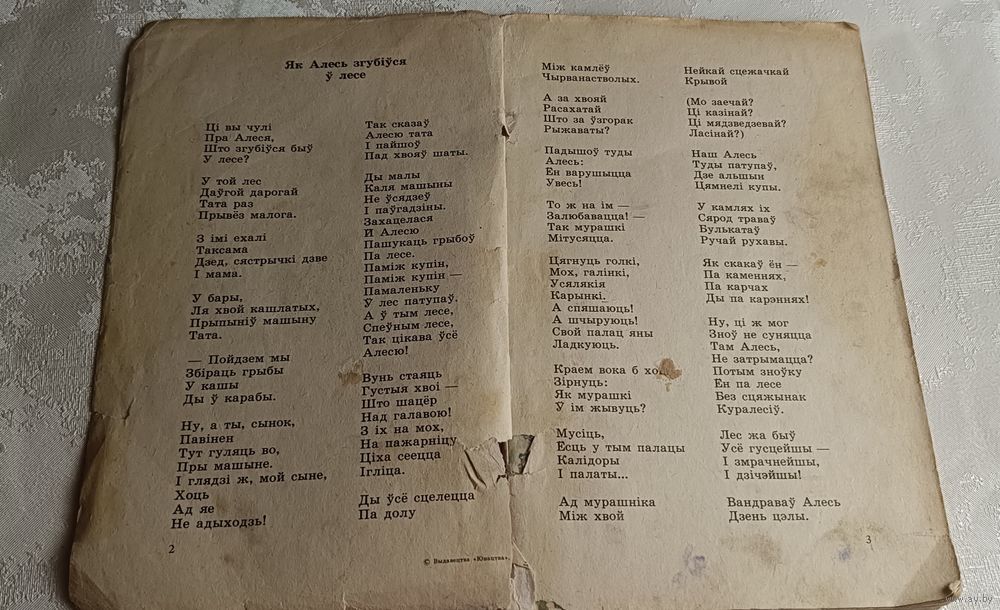 Як Алесь згубіўся
ў лесе
Ці вы чулі
Пра Алеся,
Што згубіўся быў
У лесе?
У той лес
Даўгой дарогай
Тата раз
Прывёз малога.
З імі ехалі
Таксама
Дзед, сястрычкі дзве
І мама.
У бары,
Ля хвой кашлатых,
Прыпыніў машыну
Тата.
— Пойдзем мы
Збіраць грыбы
У кашы
Ды ў карабы.
Ну, а ты, сынок,
Павінен
Тут гуляць во,
Пры машыне.
І глядзі ж, мой сыне,
Хоць
Ад яе
Не адыходзь!
2
Так сказаў
Алесю тата
І пайшоў
Пад хвояў шаты.
Ды малы
Каля машыны
Не ўсядзеў
І паўгадзіны.
Захацелася
Й Алесю
Пашукаць грыбоў
Па лесе.
Паміж купін,
Паміж купін —
Памаленьку
Ў лес патупаў.
А ў тым лесе,
Спеўным лесе,
Так цікава ўсё
Алесю!
Вунь стаяць
Густыя хвоі —
Што шацёр
Над галавою!
З іх на мох,
На пажарніцу
Ціха сеецца
Ігліца.
Ды ўсё сцелецца
Па долу
© Выдавецтва «Юнацтва».
Між камлёў
Чырванастволых.
А за хвояй
Расахатай
Што за ўзгорак
Рыжаваты?
Падышоў туды
Алесь:
Ён варушыцца
Увесь!
То ж на ім —
Залюбавацца! —
Так мурашкі
Мітусяцца.
Цягнуць голкі,
Мох, галінкі,
Усялякія
Карынкі.
А спяшаюць!
А шчыруюць!
Свой палац яны
Ладкуюць.
Краем вока б
Зірнуць:
Як мурашкі
Ў ім жывуць?
Мусіць,
Ёсць у тым палацы
Калідоры
І палаты...
Ад мурашніка
Між хвой
Нейкай сцежачкай
Крывой
(Мо заечай?
Ці казінай?
Ці мядзведзевай?
Ласінай?)
Наш Алесь
Туды патупаў,
Дзе альшын
Цямнелі купы.
У камлях іх
Сярод траваў
Булькатаў
Ручай рухавы.
Як скакаў ён —
Па каменнях,
Па карчах
Ды па карэннях!
Ну, ці ж мог
Зноў не суняцца
Там Алесь,
Не затрымацца?
Потым зноўку
Ён па лесе
Без сцяжынак
Куралесіў.
Лес жа быў
Усё гусцейшы —
І змрачнейшы,
І дзічэйшы!
Вандраваў Алесь
Дзень цэлы.
3
www.ay.by